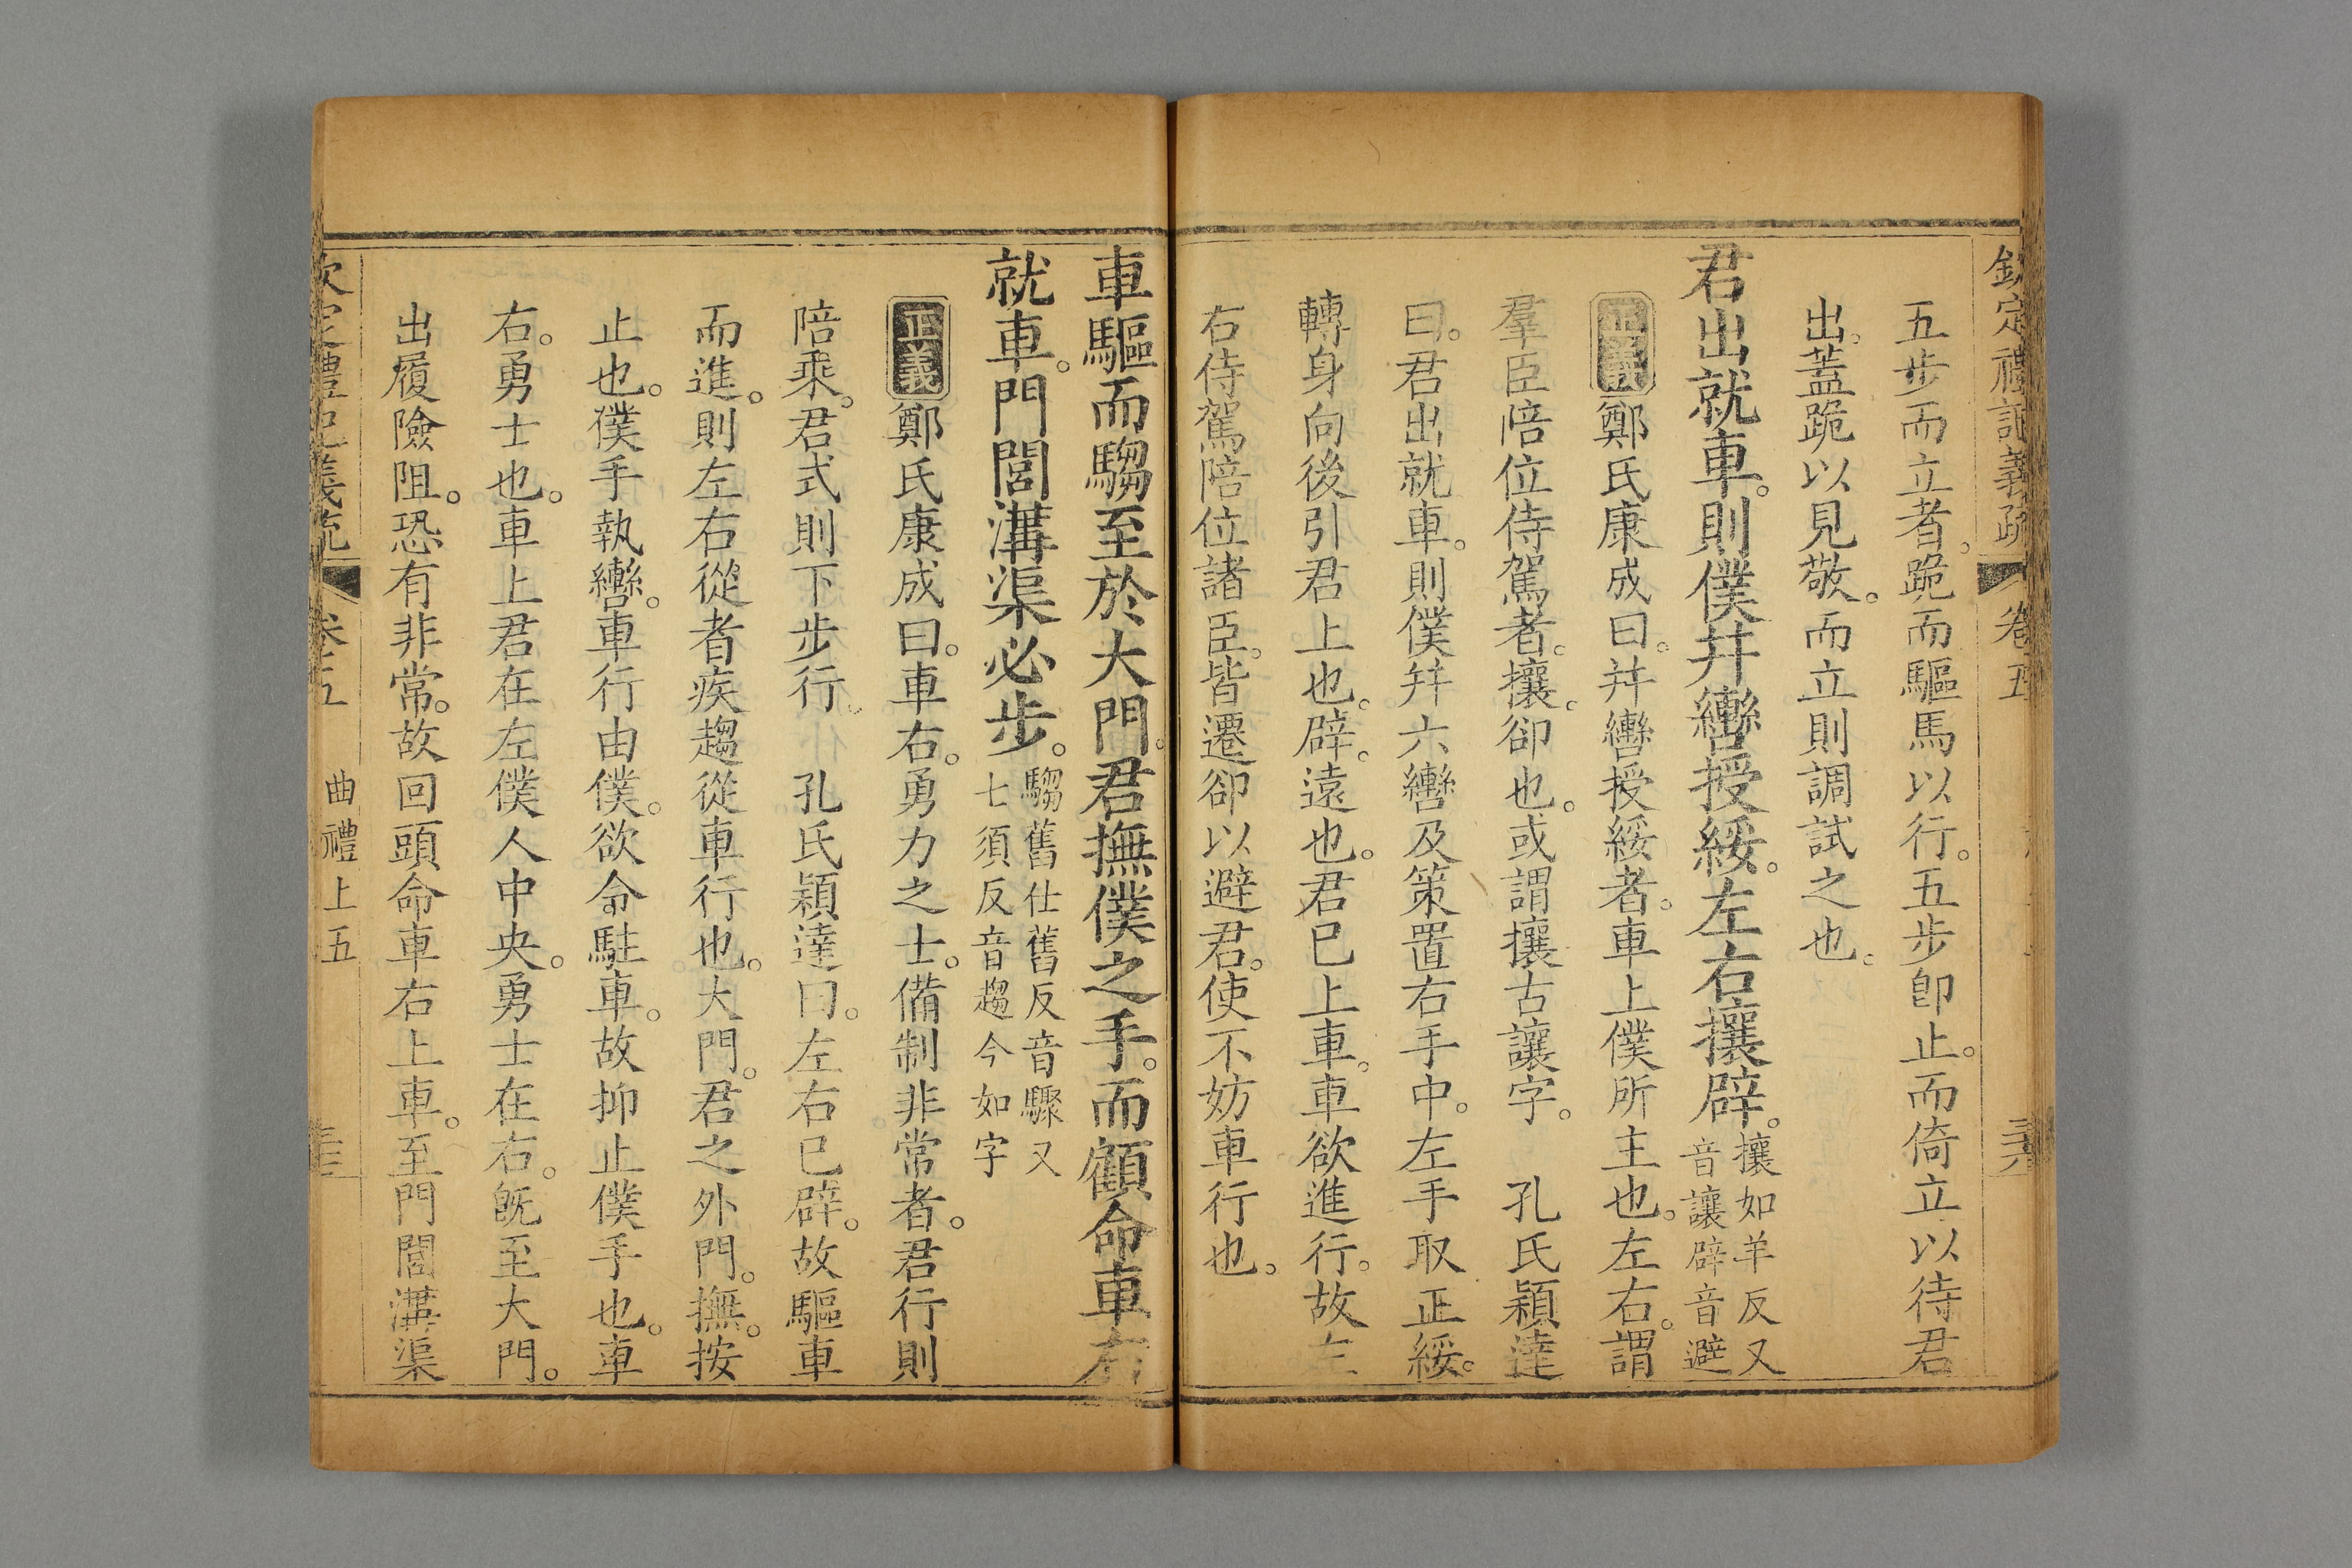 欽定禮記義疏 卷五
五步而立者。跪而驅馬以行。五步卽止。而倚立以待君
出。蓋跪以見敬。而立則調試之也。
君出就車。則僕幷轡授綏。左右攘辟。
攘如羊反又
音讓辟音避
正義鄭氏康成曰。幷轡授綏者。車上僕所主也。左右。謂
羣臣陪位侍駕者。攘。卻也。或謂攘古讓字。 孔氏穎達
曰。君出就車。則僕幷六轡及策置右手中。左手取正綏。
轉身向後引君上也。辟。遠也。君已上車。車欲進行。故左
右侍駕陪位諸臣。皆遷卻以避君。使不妨車行也。
車驅而騶至於大門。君撫僕之手。而顧命車右
就車。門閭溝渠必步。
騶舊仕舊反音驟又
七須反音趨今如字
正義鄭氏康成曰。車右。勇力之士。備制非常者。君行則
陪乘。君式則下步行。 孔氏穎達曰。左右已辟。故驅車
而進。則左右從者疾趨從車行也。大門。君之外門。撫。按
止也。僕手執轡。車行由僕。欲令駐車。故抑止僕手也。車
右。勇士也。車上君在左僕人中央。勇士在右。旣至大門。
出履險阻。恐有非常。故回頭命車右上車。至門閭溝渠
欽定禮記義疏 卷五 曲禮上五